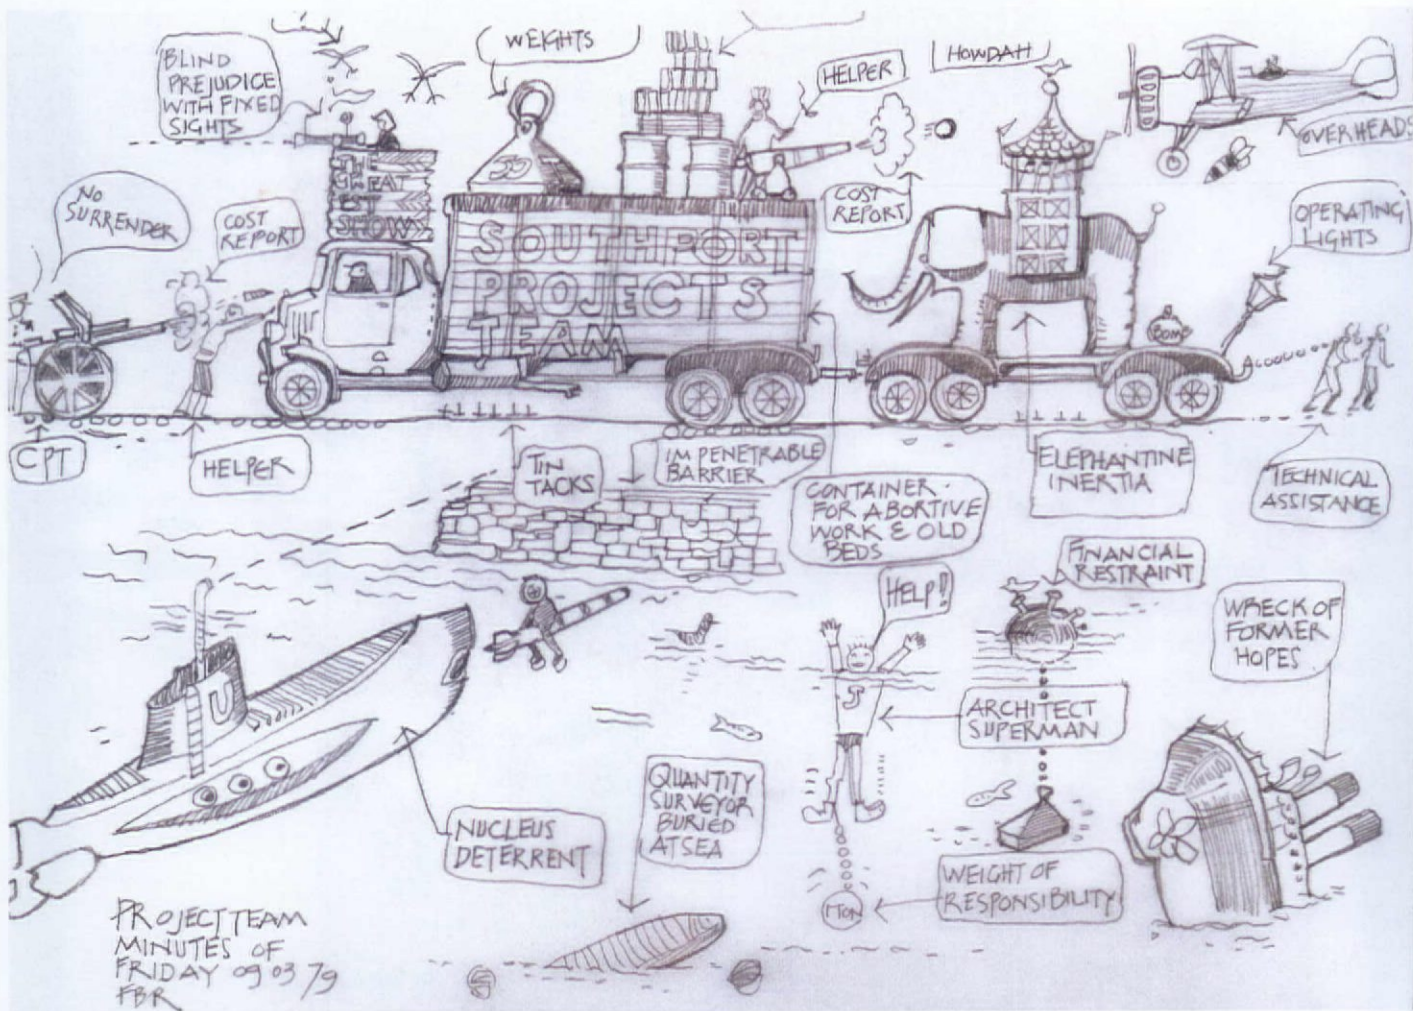 BLIND
PREJUDICE
WITH FIXED
SIGHTS
WEIGHTS
HELPER
HOWDAH
OVERHEADS
THE
GREAT
EST
SHOW
NO
SURRENDER
COST
REPORT
SOUTHPORT
PROJECTS
TEAM
COST
REPORT
OPERATING
LIGHTS
BOMB
CPT
HELPER
TIN
TACKS
IMPENETRABLE
BARRIER
CONTAINER
FOR ABORTIVE
WORK & OLD
BEDS
ELEPHANTINE
INERTIA
TECHNICAL
ASSISTANCE
HELP!
FINANCIAL
RESTRAINT
WRECK OF
FORMER
HOPES
U
J
ARCHITECT
SUPERMAN
NUCLEUS
DETERRENT
QUANTITY
SURVEYOR
BURIED
AT SEA
1 TON
WEIGHT OF
RESPONSIBILITY
PROJECT TEAM
MINUTES OF
FRIDAY 09 03 79
FBR